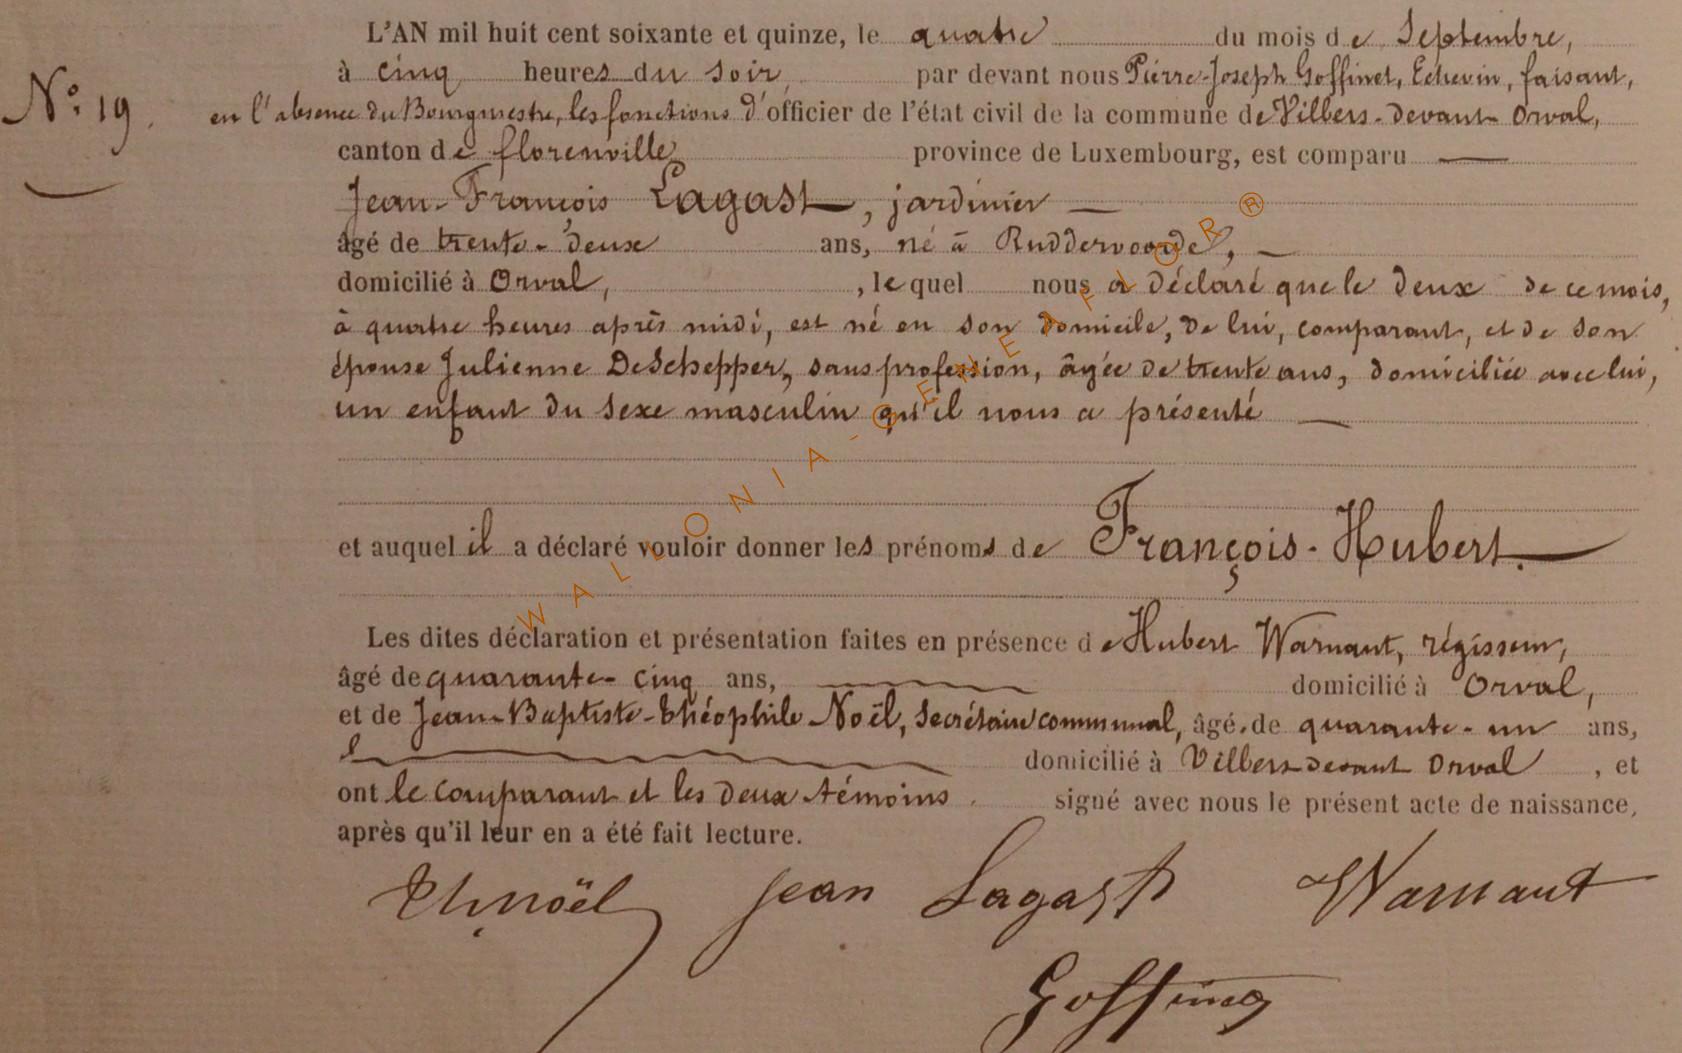 L'AN mil huit cent soixante et quinze, le quatre du mois de Septembre,
à cinq heures du soir, par devant nous Pierre-Joseph Goffinet, Echevin, faisant,
N° 19. en l'absence du Bourgmestre, les fonctions d'officier de l'état civil de la commune de Villers-devant-Orval,
canton de florenville province de Luxembourg, est comparu —
Jean-François Lagast, jardinier —
âgé de trente-deux ans, né à Ruddervoorde, —
domicilié à Orval, , lequel nous a déclaré que le deux de ce mois,
à quatre heures après midi, est né en son domicile, de lui, comparant, et de son
épouse Julienne DeSchepper, sans profession, âgée de trente ans, domiciliée avec lui,
un enfant du sexe masculin qu'il nous a présenté —
et auquel il a déclaré vouloir donner les prénoms de François-Hubert.
Les dites déclaration et présentation faites en présence de Hubert Warnant, régisseur,
âgé de quarante-cinq ans, domicilié à Orval,
et de Jean-Baptiste-Théophile Noël, Secrétaire communal, âgé de quarante-un ans,
domicilié à Villers-devant Orval , et
ont le comparant et les deux témoins signé avec nous le présent acte de naissance,
après qu'il leur en a été fait lecture.
Th. Noël Jean Lagast Warnant
Goffinet
WALLONIA-GENEAFLOR ®